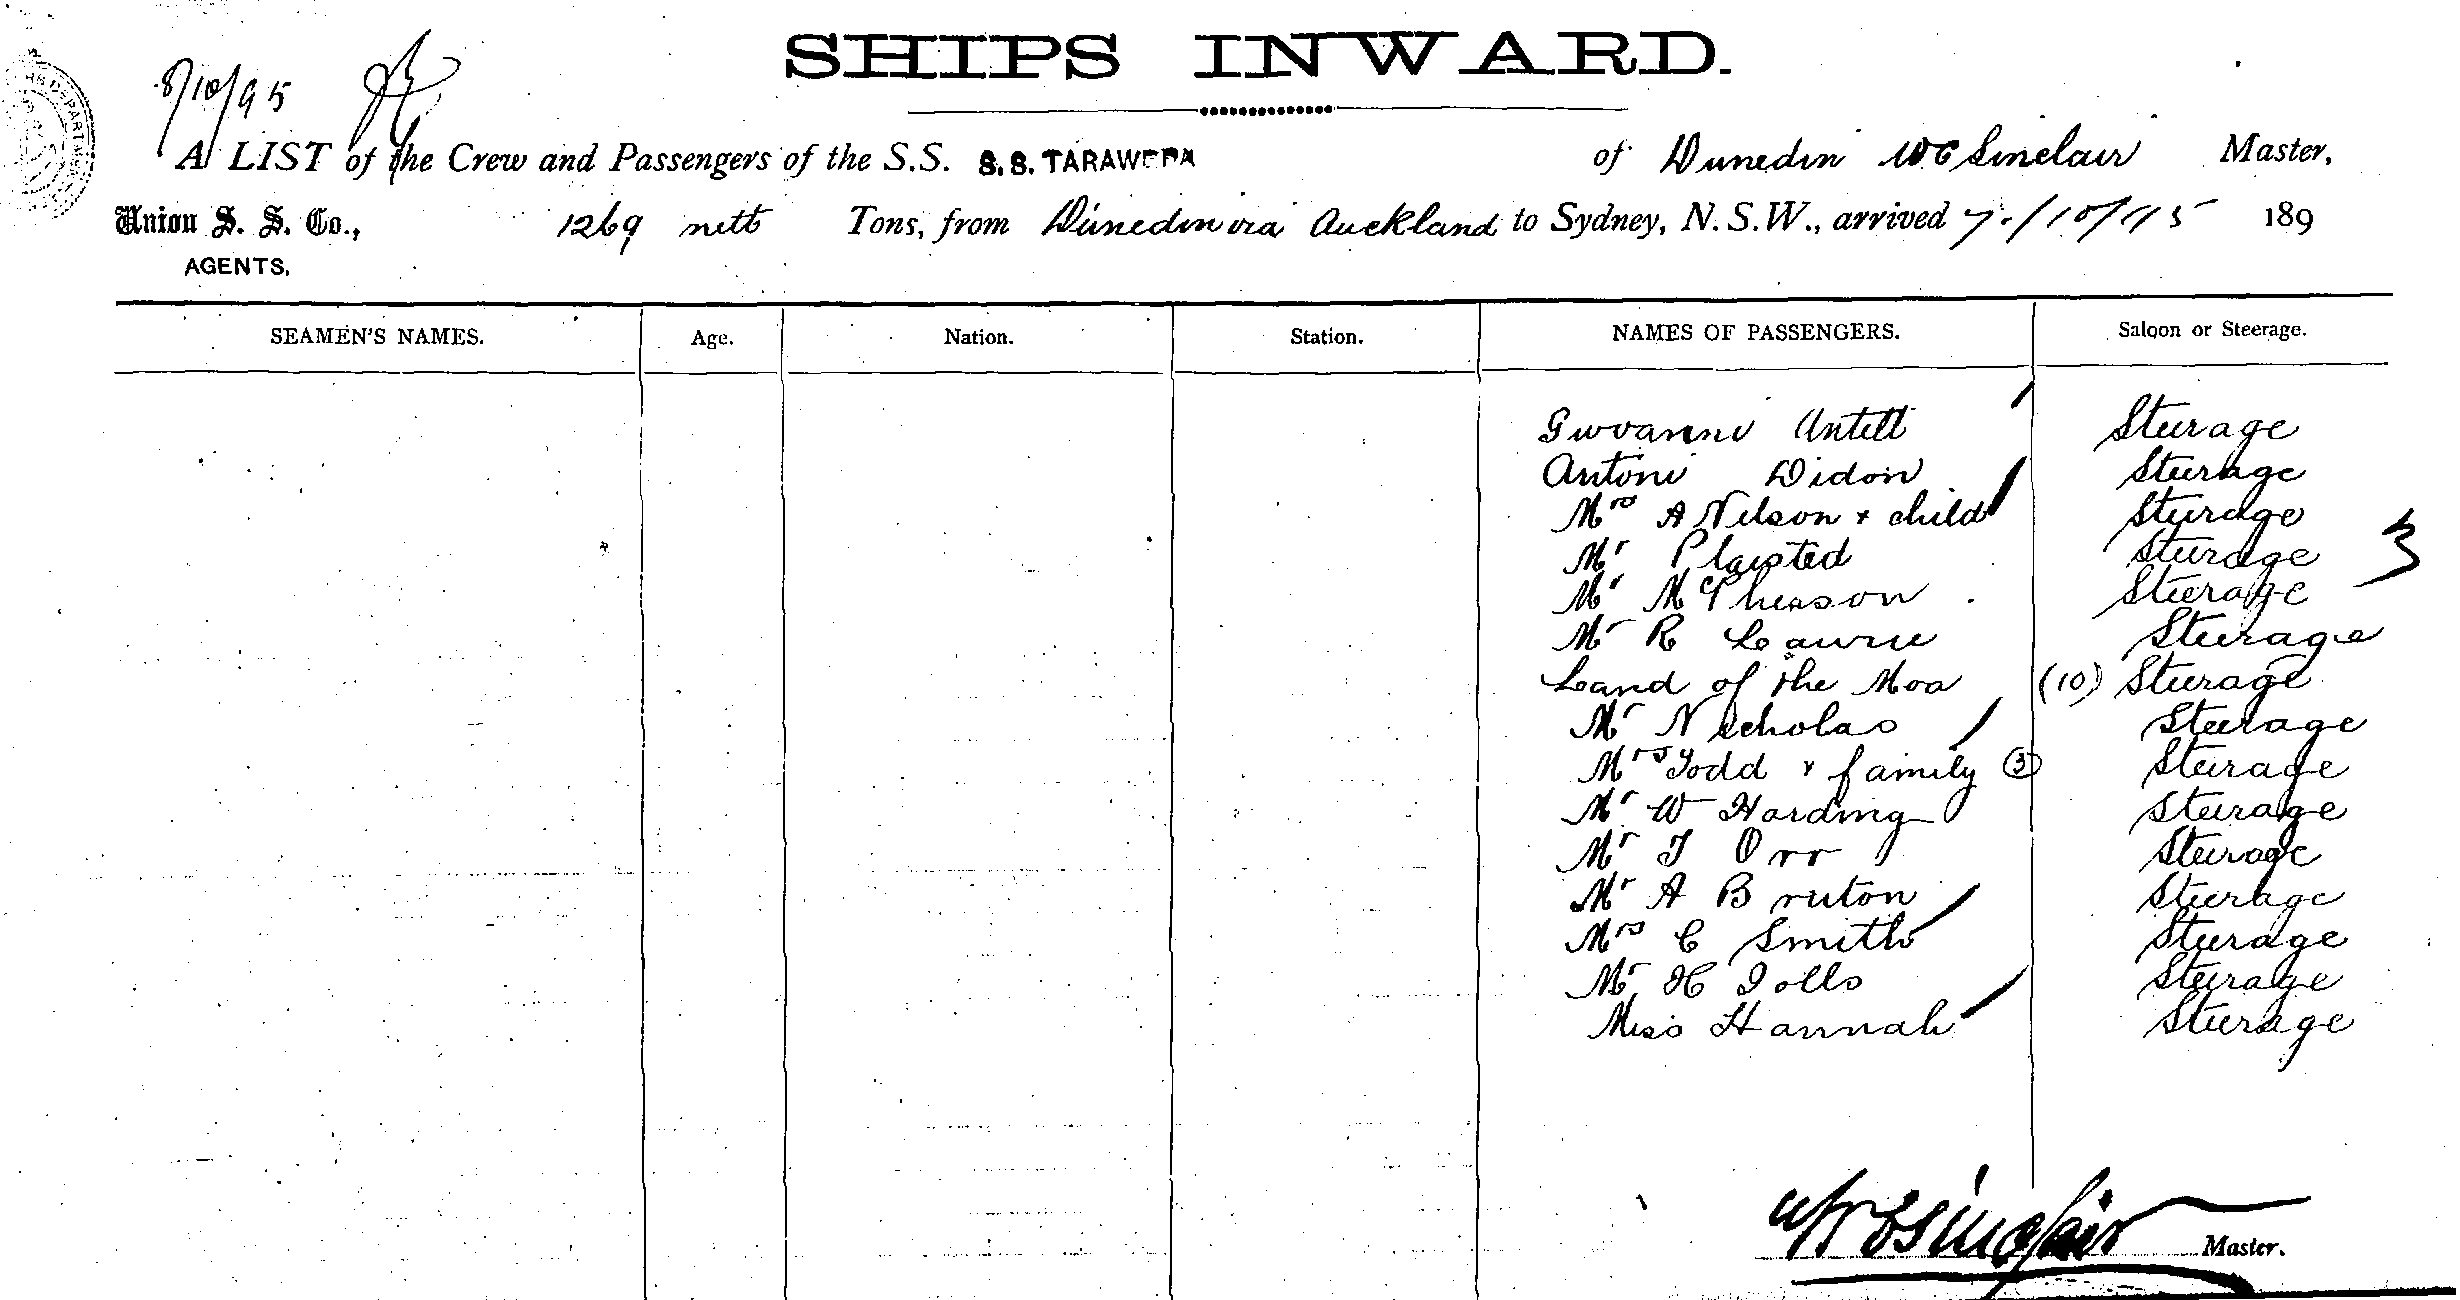 SHIPS INWARD.
8/10/95
A LIST of the Crew and Passengers of the S.S. S.S. TARAWERA of Dunedin W C Sinclair Master,
Union S. S. Co., 1269 nett Tons, from Dunedin via Auckland to Sydney, N.S.W., arrived 7/10/95 189
AGENTS.
SEAMEN'S NAMES. Age. Nation. Station. NAMES OF PASSENGERS. Saloon or Steerage.
Giovanni Antill Steerage
Antoni Didon Steerage
Mrs A Nilson + child Steerage
Mr Plaisted Steerage 3
Mr McPherson Steerage
Mr R Lawrie Steerage
Land of the Moa (10) Steerage
Mr Nicholas Steerage
Mrs Todd + family (3) Steerage
Mr W Harding Steerage
Mr T Orr Steerage
Mr A Bruton Steerage
Mrs C Smith Steerage
Mr H Jolls Steerage
Miss Hannah Steerage
W C Sinclair Master.